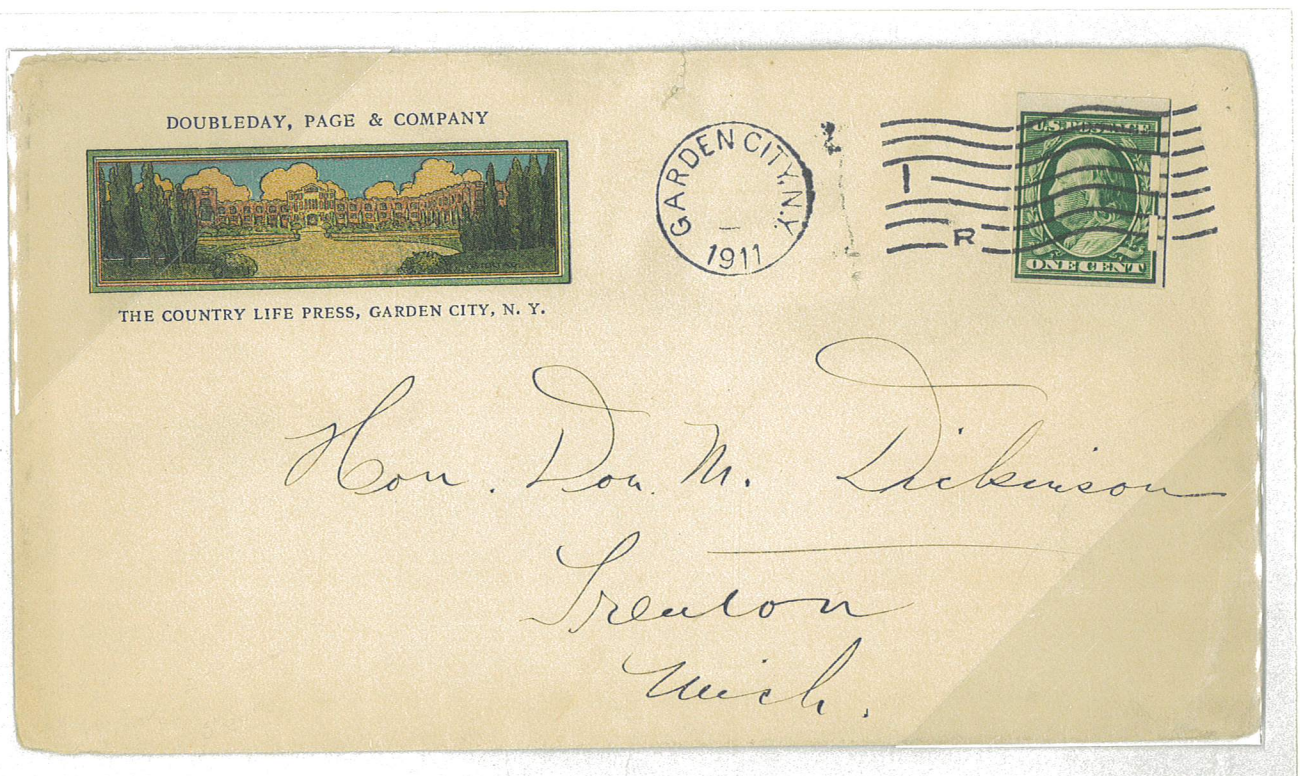 DOUBLEDAY, PAGE & COMPANY
THE COUNTRY LIFE PRESS, GARDEN CITY, N. Y.
GARDEN CITY, N.Y.
1911
1
R
U.S. POSTAGE
ONE CENT
Hon. Don. M. Dickinson
Trenton
Mich.